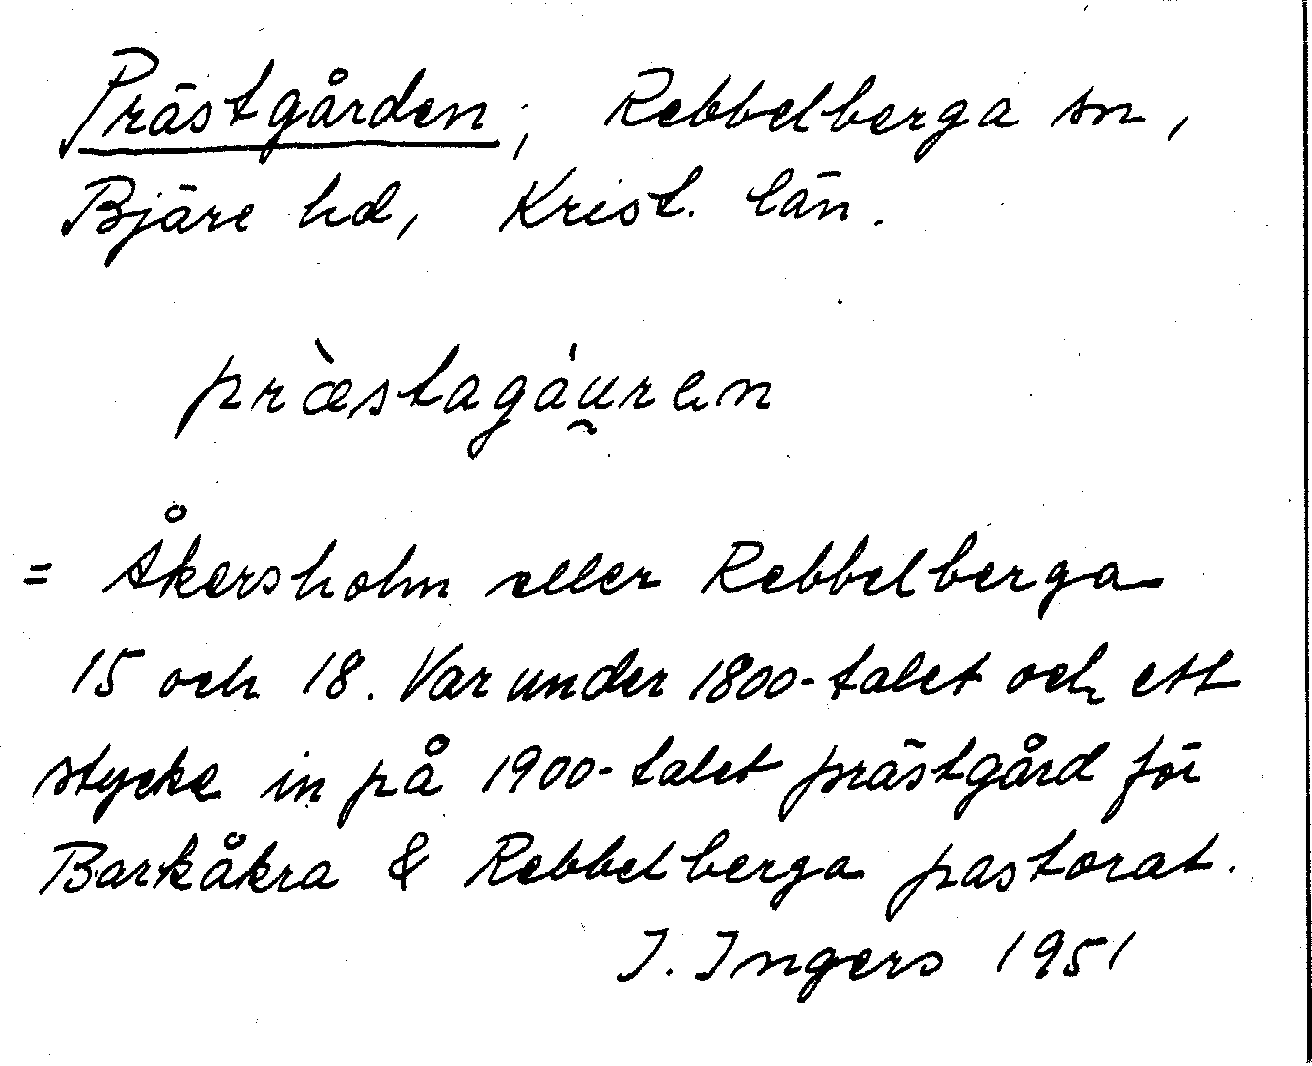 Prästgården, Rebbelberga sn,
Bjäre hd, Krist. län.
præ̀stagáu̯ren
= Åkersholm eller Rebbelberga
15 och 18. Var under 1800-talet och ett
stycke in på 1900-talet prästgård för
Barkåkra & Rebbelberga pastorat.
I. Ingers 1951